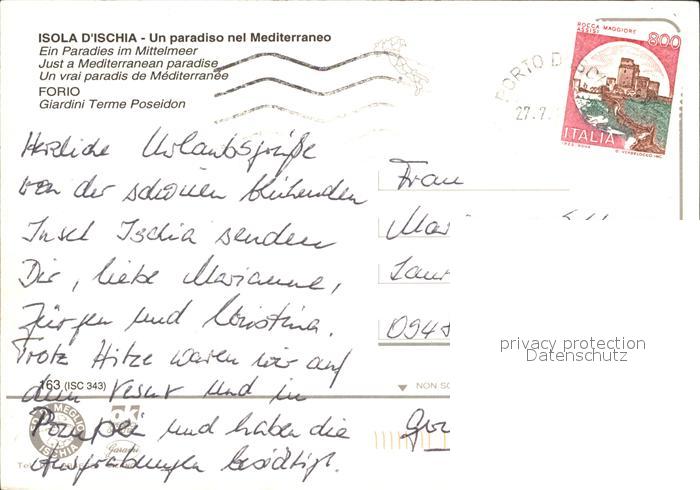 ISOLA D'ISCHIA - Un paradiso nel Mediterraneo
Ein Paradies im Mittelmeer
Just a Mediterranean paradise
Un vrai paradis de Méditerranée
FORIO
Giardini Terme Poseidon
ROCCA MAGGIORE
ASSISI
800
ITALIA
PORTO D
27.7.
Herzliche Urlaubsgrüße
von der schönen blühenden
Insel Ischia senden
Dir, liebe Marianne,
Jürgen und Christina.
Trotz Hitze waren wir auf
dem Vesuv und in
Pompei und haben die
Ausgrabungen besichtigt.
Frau
Mari
094
163 (ISC 343)
NON SC
MEGLIO
ISCHIA
privacy protection
Datenschutz